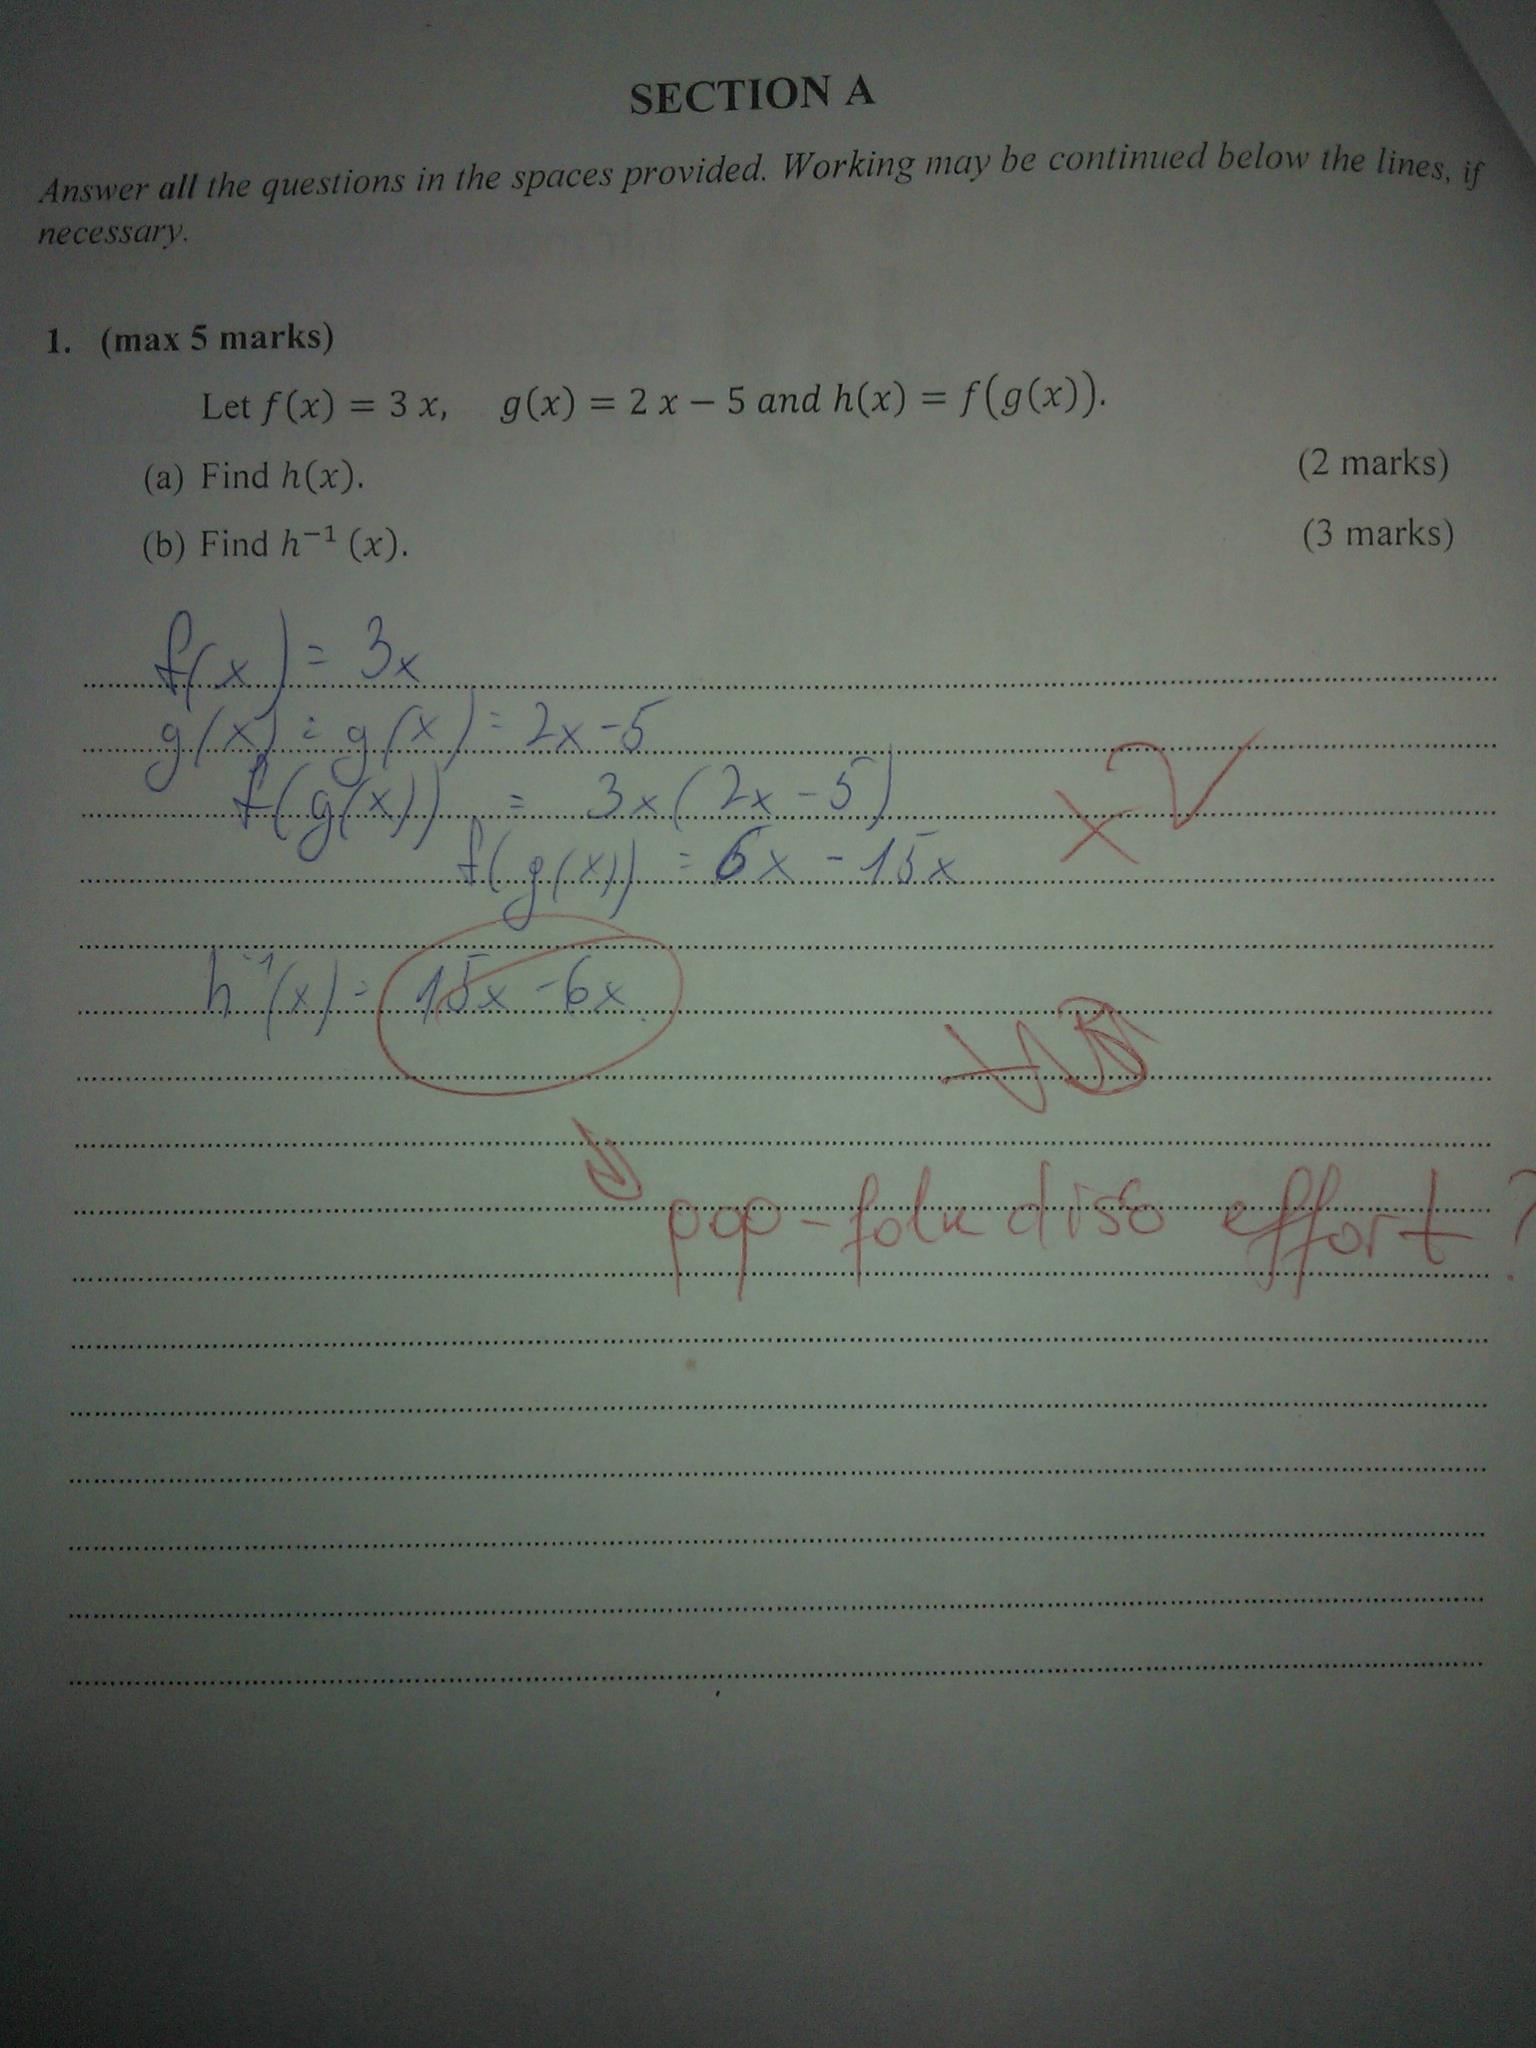 SECTION A
Answer all the questions in the spaces provided. Working may be continued below the lines, if
necessary.
1. (max 5 marks)
Let f(x) = 3 x, g(x) = 2 x − 5 and h(x) = f(g(x)).
(a) Find h(x). (2 marks)
(b) Find h⁻¹ (x). (3 marks)
f(x) = 3x
g(x) = g(x) = 2x - 5
f(g(x)) = 3x(2x - 5)
f(g(x)) = 6x - 15x
h⁻¹(x) = 15x - 6x
pop-folk disco effort?